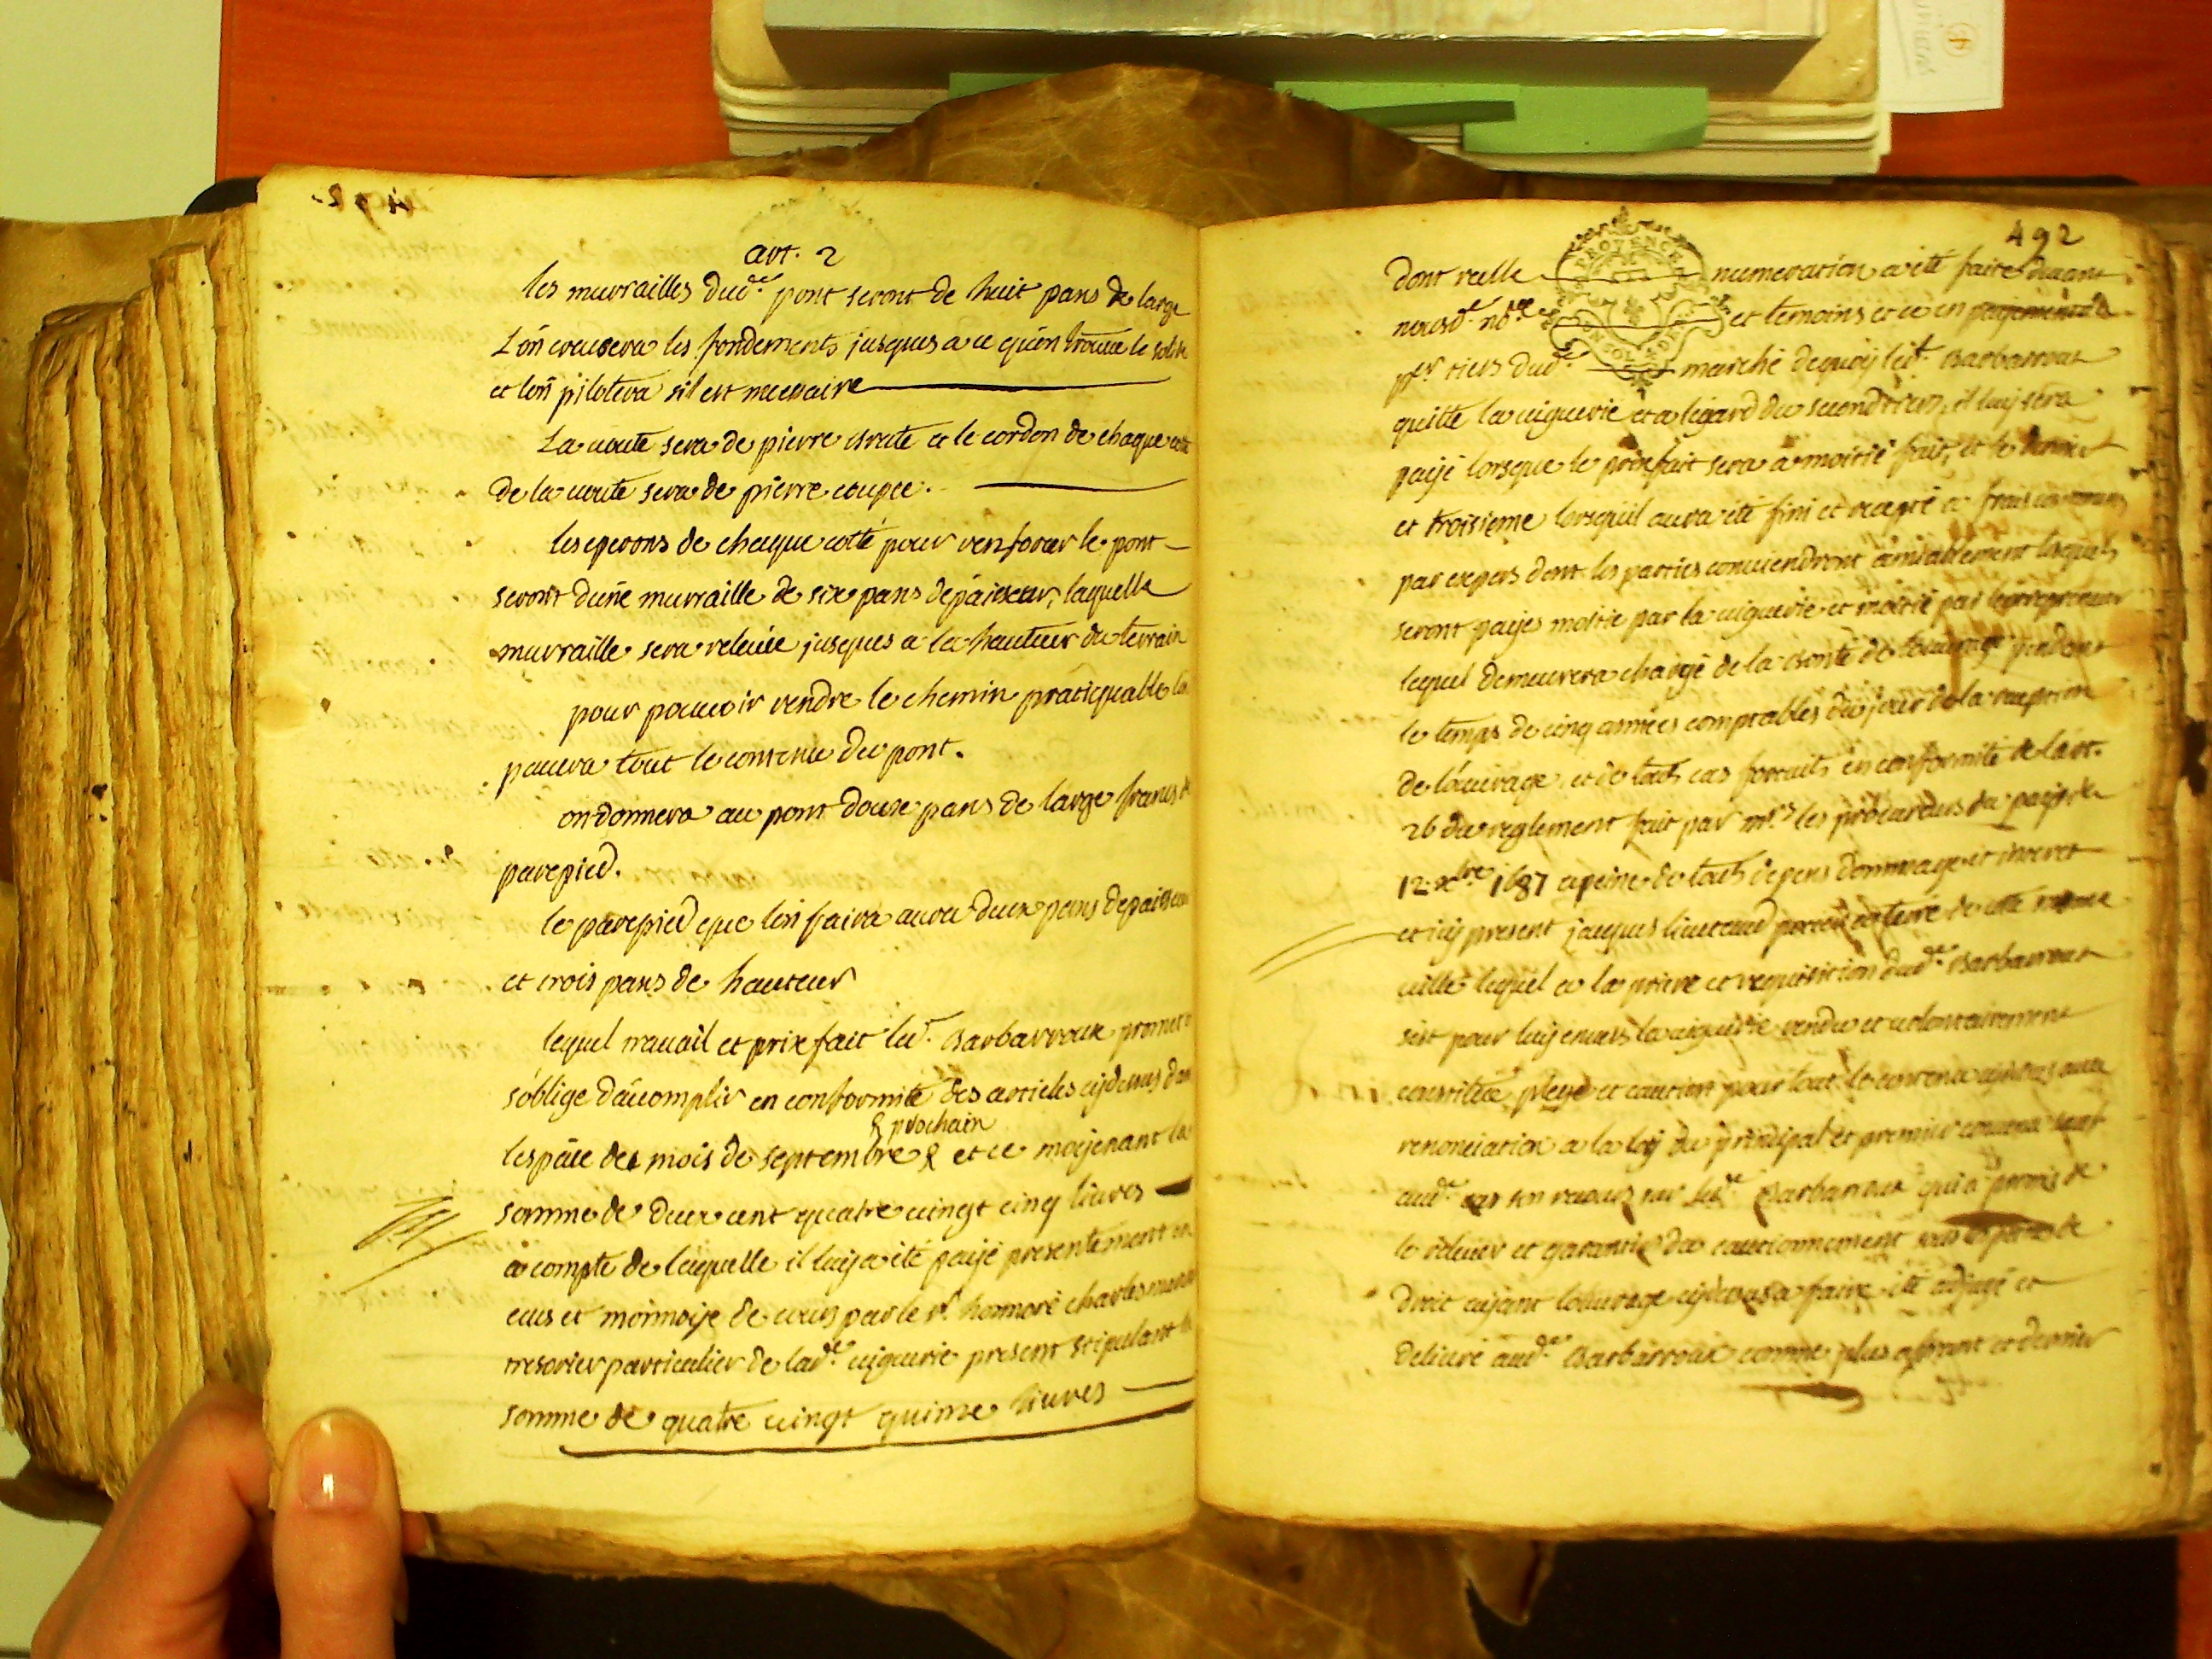 art. 2
les murrailles dud.e pont seront de huit pans de large
L'on creusera les fondements jusques a ce qu'on trouve le solide
et lon pilotera sil est necessaire
La voute sera de pierre brute et le cordon de chaque coté
de la voute sera de pierre coupée.
les eperons de chaque cotté pour renforcer le pont
seront d'une murraille de six pans depaisseur, laquelle
murraille sera relevée jusques a la hauteur du terrain
pour pouvoir rendre le chemin praticquable l'on
pavera tout le contenu du pont.
on donnera au pont douze pans de large francs de
parepied.
le parepied que lon faira aura deux pans depaisseur
et trois pans de hauteur
lequel travail et prixfait led.t Barbarroux promet et
s'oblige d'acomplir en conformité des articles cydessus dans
lespace des mois de septembre & et ce moyenant la
& prochain
somme de deux cent quatre vingt cinq livres
a compte de laquelle il luy a été payé presentement en
ecus et monnoye de cours par le sr. honnoré charles
tresorier particulier de lad.e viguerie present stipulant la
somme de quatre vingt quinze livres
492
PROVENCE
dont reelle numeration a été faite devant
nousd.t no.re et temoins et ce en payement du
p.er tiers dud.t marché dequoy led.t Barbarroux
quitte la viguerie et a legard du second tiers, il luy sera
payé lorsque le prixfait sera a moitié fait, et le dernier
et troisieme lorsquil aura été fini et recepté a frais communs
par expers dont les parties conviendront amiablement lesquels
seront payes moitié par la viguerie et moitié par lentrepreneur
lequel demeurera chargé de la bonté de louvrage pendant
le temps de cinq années comptables du jour de la reception
de l'ouvrage, et de touts cas fortuits en conformité de l'art.
26 du reglement fait par mrs les procureurs du pays le
12 xbre 1687 a peine de touts depens dommages et interet
et icy present jacques lieutaud de cette meme
ville lequel a la priere et requisition dud.t Barbarroux
sest pour luy envers la viguerie rendu et volontairement
constitué plege et caution pour tout le contenu cydessus avec
renonciation a la loy du principal et premier convenu sauf
aud.t son recours sur led.t Barbarroux qui a promis de
le relever et garantir du cautionnement sous les peines de
droit ayant louvrage cydessus a faire été adjugé et
delivré aud.t Barbarroux comme plus offrant et dernier